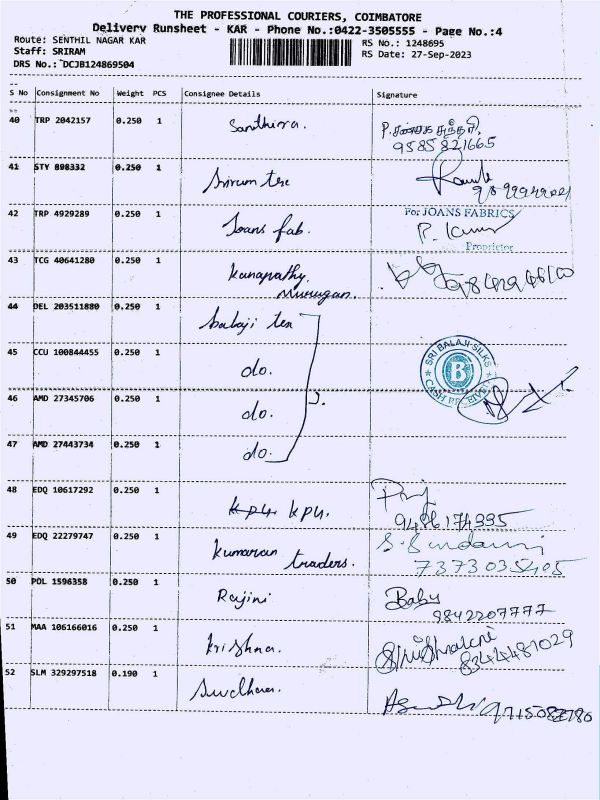 THE PROFESSIONAL COURIERS, COIMBATORE
Delivery Runsheet - KAR - Phone No.:0422-3505555 - Page No.:4
Route: SENTHIL NAGAR KAR
RS No.: 1248695
Staff: SRIRAM
RS Date: 27-Sep-2023
DRS No.: DCJB124869504
S No Consignment No Weight PCS Consignee Details Signature
40 TRP 2042157 0.250 1
9585821665
41 STY 898332 0.250 1 Sriram tex
42 TRP 4929289 0.250 1 Joans fab.
For JOANS FABRICS
P. Kumar
Proprietor
43 TCG 40641280 0.250 1 Kanapathy
Murugan.
44 DEL 203511880 0.250 1 balaji tex
45 CCU 100844455 0.250 1 do.
SRI BALAJI SILKS
B
CASH RECEIVE
46 AMD 27345706 0.250 1 do.
47 AMD 27443734 0.250 1 do.
48 EDQ 10617292 0.250 1 KPN.
49 EDQ 22279747 0.250 1 Kumaran traders.
7373035405
50 POL 1596358 0.250 1 Rajini Baby
9842207777
51 MAA 106166016 0.250 1 Krishna.
8344481029
52 SLM 329297518 0.190 1 Sudhan.